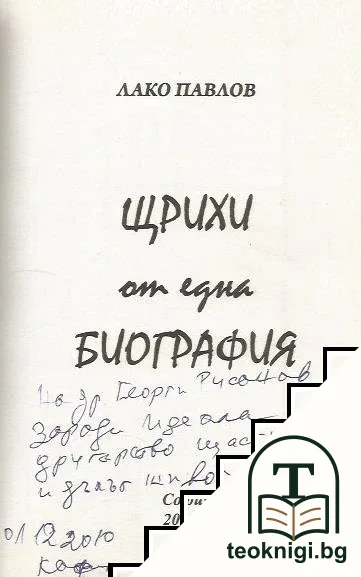 ЛАКО ПАВЛОВ
ЩРИХИ
от една
БИОГРАФИЯ
На др. Георги Русанов
Заради идеала
другарство щаст
и дълъг живо
Софи
20
01.12.2010
T
teoknigi.bg